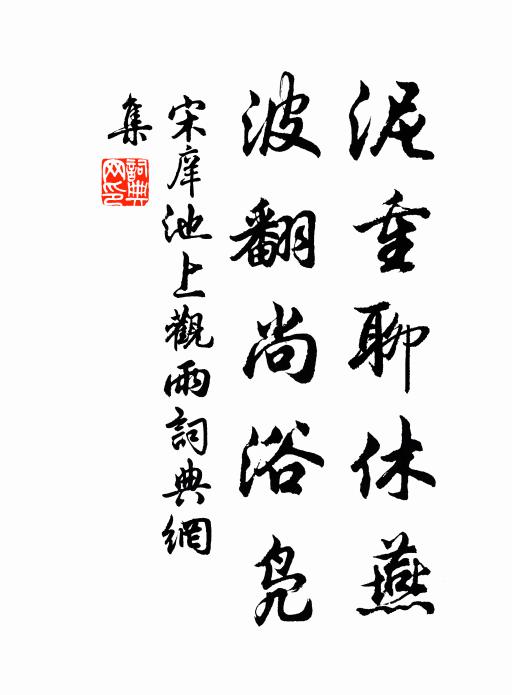 泥重聊休燕
波翻尚浴鳧
宋庠池上觀雨詞典網
集
詞典網印